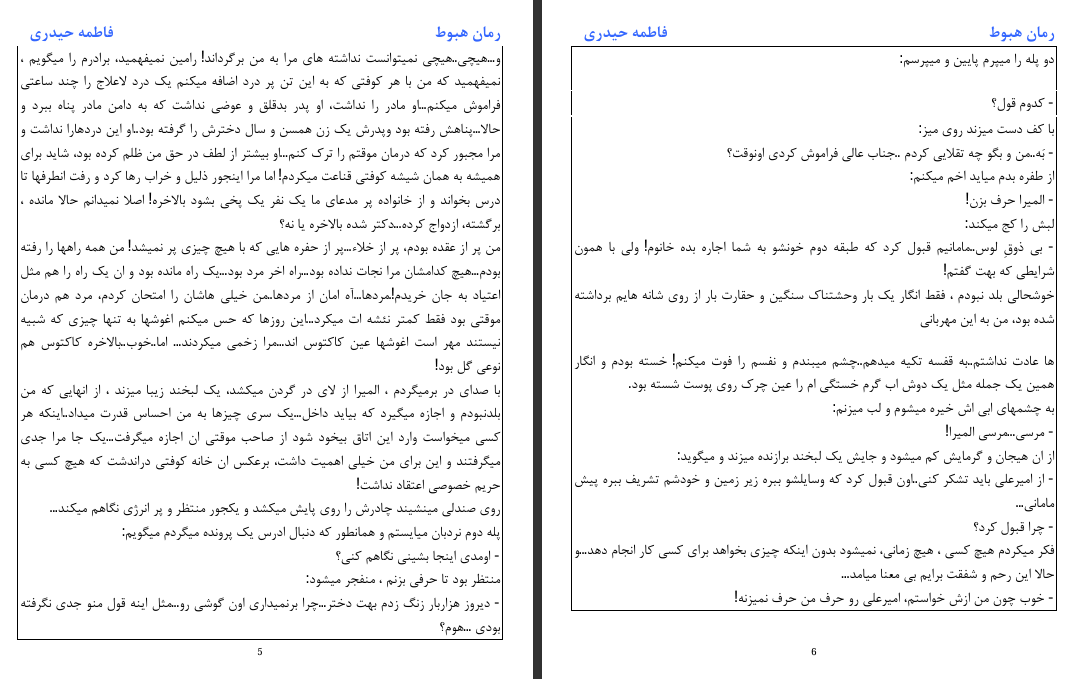 رمان هبوط
فاطمه حیدری
و...هیچی..هیچی نمیتوانست نداشته های مرا به من برگرداند! رامین نمیفهمید، برادرم را میگویم ،
نمیفهمید که من با هر کوفتی که به این تن پر درد اضافه میکنم یک درد لاعلاج را چند ساعتی
فراموش میکنم...او مادر را نداشت، او پدر بدقلق و عوضی نداشت که به دامن مادر پناه ببرد و
حالا...پناهش رفته بود وپدرش یک زن همسن و سال دخترش را گرفته بود..او این دردهارا نداشت و
مرا مجبور کرد که درمان موقتم را ترک کنم...او بیشتر از لطف در حق من ظلم کرده بود، شاید برای
همیشه به همان شیشه کوفتی قناعت میکردم! اما مرا اینجور ذلیل و خراب رها کرد و رفت انطرفها تا
درس بخواند و از خانواده پر مدعای ما یک نفر یک پخی بشود بالاخره! اصلا نمیدانم حالا مانده ،
برگشته، ازدواج کرده...دکتر شده بالاخره یا نه؟
من پر از عقده بودم، پر از خلاء...پر از حفره هایی که با هیچ چیزی پر نمیشد! من همه راهها را رفته
بودم...هیچ کدامشان مرا نجات نداده بود...راه اخر مرد بود...یک راه مانده بود و ان یک راه را هم مثل
اعتیاد به جان خریدم!مردها...آه امان از مردها..من خیلی هاشان را امتحان کردم، مرد هم درمان
موقتی بود فقط کمتر نئشه ات میکرد...این روزها که حس میکنم اغوشها به تنها چیزی که شبیه
نیستند مهر است اغوشها عین کاکتوس اند...مرا زخمی میکردند... اما..خوب..بالاخره کاکتوس هم
نوعی گل بود!
با صدای در برمیگردم ، المیرا از لای در گردن میکشد، یک لبخند زیبا میزند ، از انهایی که من
بلدنبودم و اجازه میگیرد که بیاید داخل...یک سری چیزها به من احساس قدرت میداد..اینکه هر
کسی میخواست وارد این اتاق بیخود شود از صاحب موقتی ان اجازه میگرفت...یک جا مرا جدی
میگرفتند و این برای من خیلی اهمیت داشت، برعکس ان خانه کوفتی دراندشت که هیچ کسی به
حریم خصوصی اعتقاد نداشت!
روی صندلی مینشیند چادرش را روی پایش میکشد و یکجور منتظر و پر انرژی نگاهم میکند...
پله دوم نردبان میایستم و همانطور که دنبال ادرس یک پرونده میگردم میگویم:
- اومدی اینجا بشینی نگاهم کنی؟
منتظر بود تا حرفی بزنم ، منفجر میشود:
- دیروز هزاربار زنگ زدم بهت دختر...چرا برنمیداری اون گوشی رو...مثل اینه قول منو جدی نگرفته
بودی ...هوم؟
5
رمان هبوط
فاطمه حیدری
دو پله را میپرم پایین و میپرسم:
- کدوم قول؟
با کف دست میزند روی میز:
- بَه..من و بگو چه تقلایی کردم ..جناب عالی فراموش کردی اونوقت؟
از طفره بدم میاید اخم میکنم:
- المیرا حرف بزن!
لبش را کج میکند:
- بی ذوقِ لوس..مامانیم قبول کرد که طبقه دوم خونشو به شما اجاره بده خانوم! ولی با همون
شرایطی که بهت گفتم!
خوشحالی بلد نبودم ، فقط انگار یک بار وحشتناک سنگین و حقارت بار از روی شانه هایم برداشته
شده بود، من به این مهربانی
ها عادت نداشتم..به قفسه تکیه میدهم..چشم میبندم و نفسم را فوت میکنم! خسته بودم و انگار
همین یک جمله مثل یک دوش اب گرم خستگی ام را عین چرک روی پوست شسته بود.
به چشمهای ابی اش خیره میشوم و لب میزنم:
- مرسی...مرسی المیرا!
از ان هیجان و گرمایش کم میشود و جایش یک لبخند برازنده میزند و میگوید:
- از امیرعلی باید تشکر کنی..اون قبول کرد که وسایلشو ببره زیر زمین و خودشم تشریف ببره پیش
مامانی...
- چرا قبول کرد؟
فکر میکردم هیچ کسی ، هیچ زمانی، نمیشود بدون اینکه چیزی بخواهد برای کسی کار انجام دهد...و
حالا این رحم و شفقت برایم بی معنا میامد...
- خوب چون من ازش خواستم، امیرعلی رو حرف من حرف نمیزنه!
6